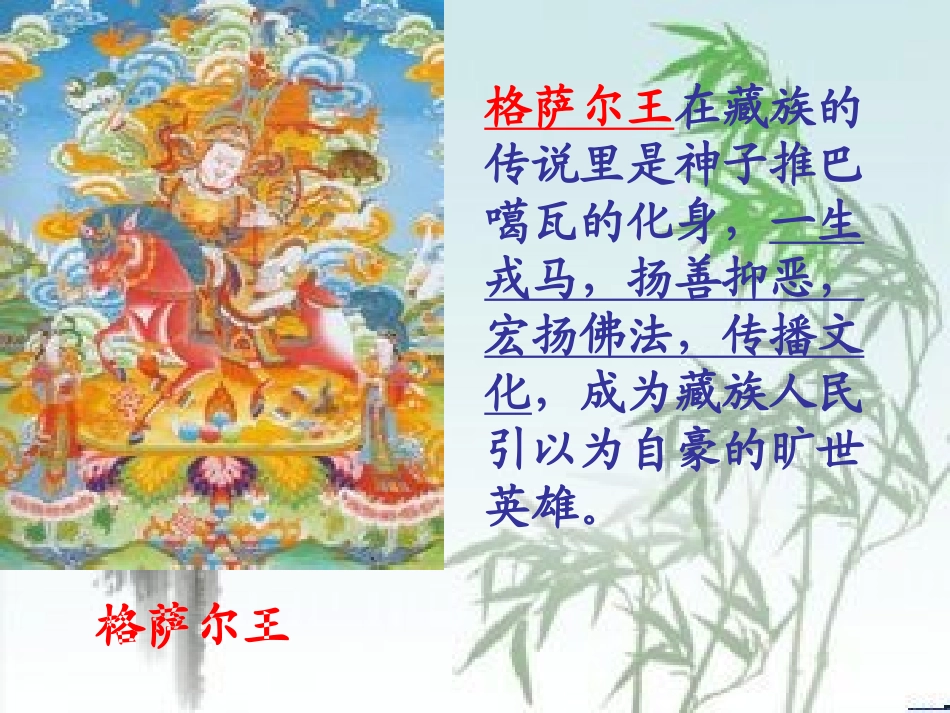 格萨尔王在藏族的
传说里是神子推巴
噶瓦的化身，一生
戎马，扬善抑恶，
宏扬佛法，传播文
化，成为藏族人民
引以为自豪的旷世
英雄。
格萨尔王